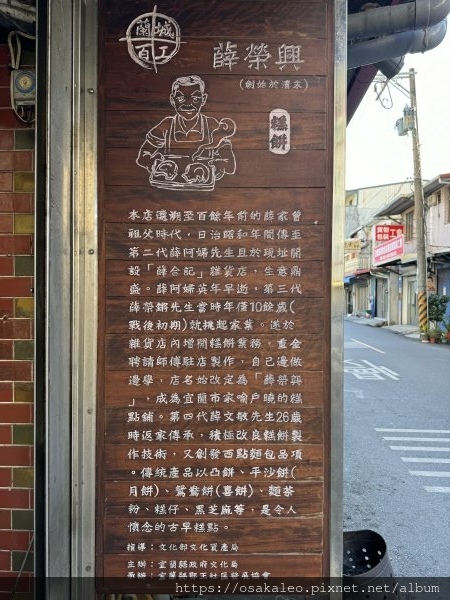 蘭城
百工
薛榮興
(創始於清末)
糕餅
本店遠溯至百餘年前的薛家曾
祖父時代，日治昭和年間傳至
第二代薛阿婦先生且於現址開
設「薛合記」雜貨店，生意鼎
盛。薛阿婦英年早逝，第三代
薛榮鏘先生當時年僅10餘歲(
戰後初期)就挑起家業。遂於
雜貨店內增開糕餅業務，重金
聘請師傅駐店製作，自己邊做
邊學，店名始改定為「薛榮興
」，成為宜蘭市家喻戶曉的糕
點鋪。第四代薛文敏先生26歲
時返家傳承，積極改良糕餅製
作技術，又創發西點麵包品項
。傳統產品以凸餅、平沙餅(
月餅)、鴛鴦餅(喜餅)、麵茶
粉、糕仔、黑芝麻等，是令人
懷念的古早糕點。
指導：文化部文化資產局
主辦：宜蘭縣政府文化局
承辦：宜蘭縣鄂王社區發展協會
https://osakaleo.pixnet.net/album